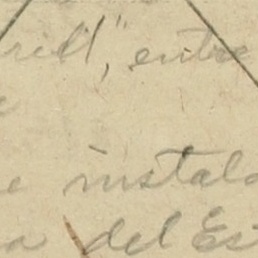 rill", entre
e
e instala
a del Es